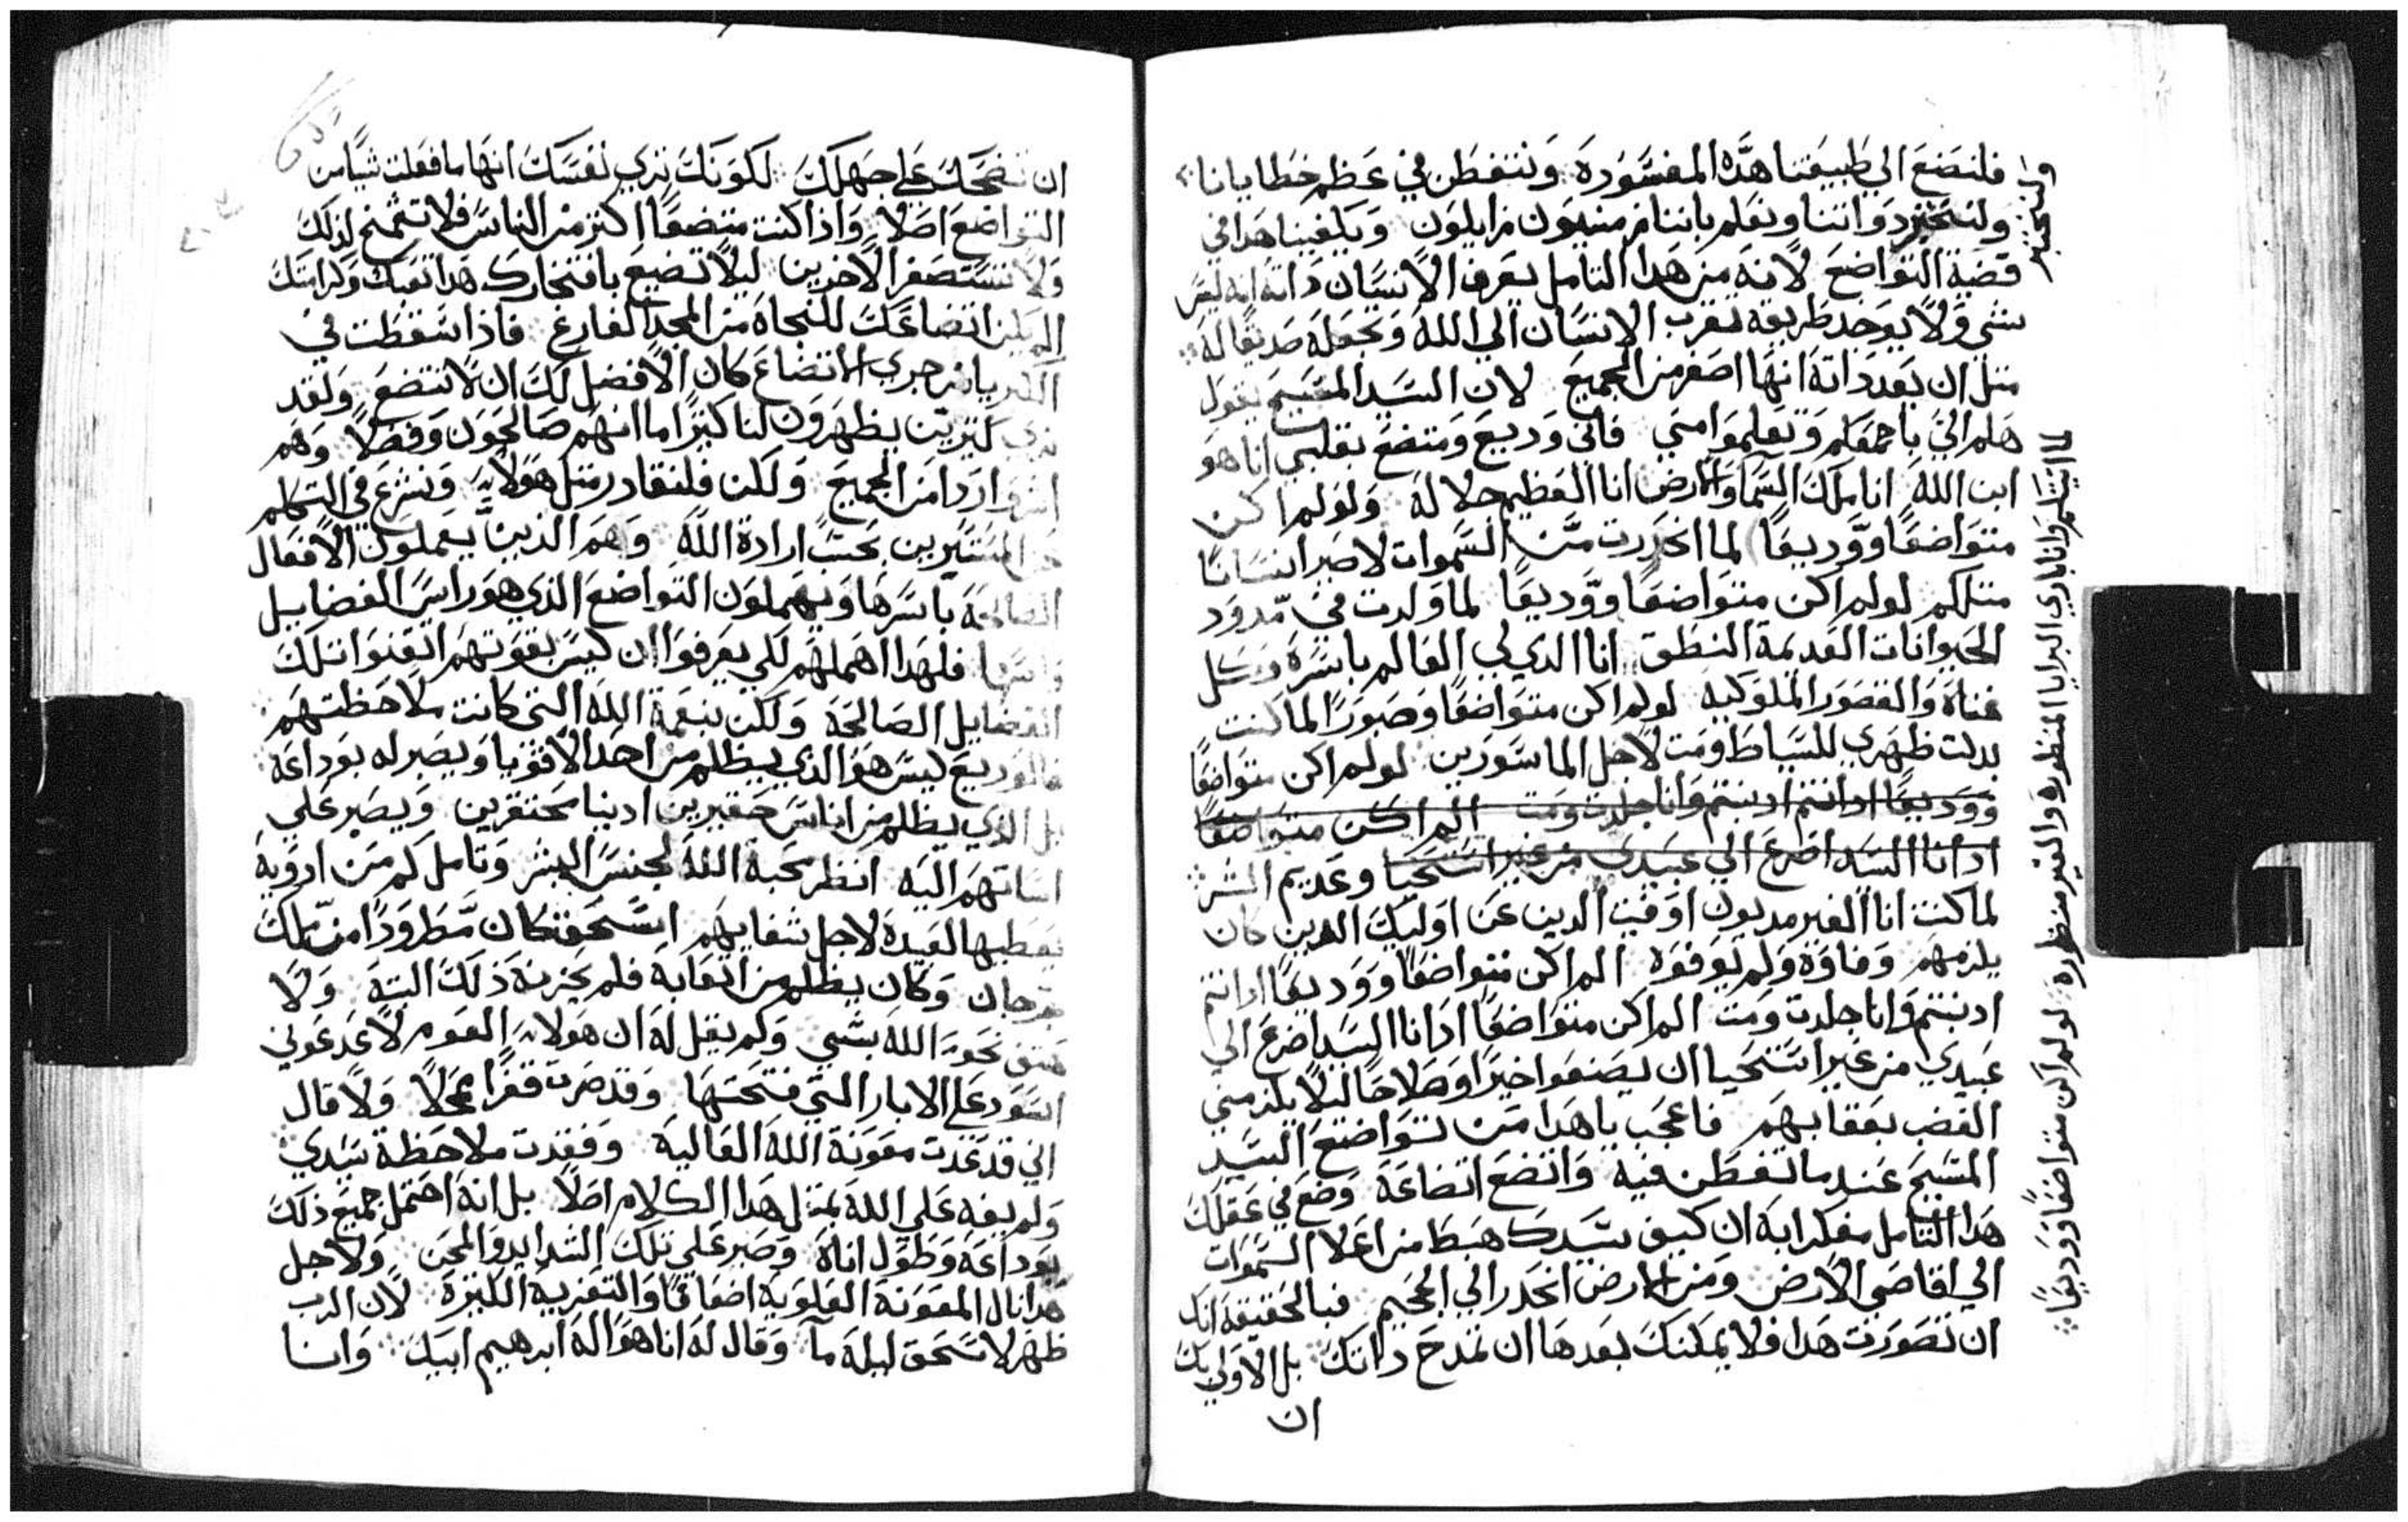 فلنضع الي طبيعتنا هذه المفسوده ونتفطن في عظم خطايانا
ولنختبر دواتنا ونعلم باننا مزايلون ويكفينا هدا في
قضية التواضع لانه من هدا التامل يعرف الانسان داته انه ليس
شي ولا يوجد طريقه تقرب الانسان الي الله وتجعله صديقا له
متل ان يعد داته انها اصغر من الجميع لان السيد المسيح يقول
هلم الي ياجمعكم وتعلموا مني فاني وديع ومتضع بقلبي انا هو
ابن الله انا ملك السما والارض انا العظيم جلاله ولولم اكن
متواضعا ووديعا لما انحدرت من السموات لاصير انسانا
متلكم لولم اكن متواضعا ووديعا لما ولدت في مدود
الحيوانات العديمة النطق انا الدي لي العالم باسره وكل
غناه والقصور الملوكيه لولم اكن متواضعا وصبورا لما كنت
بدلت ظهري للسياط ومت لاجل الماسورين لولم اكن متواضعا
ووديعا ادا انتم ادنبتم وانا جلدت ومت الم اكن متواضعا
ادا انا السيد اضرع الي عبيدي من غير استحيا وعديم الشر
لما كنت انا الغير مديون اوفيت الدين عن اوليك الدين كان
يلزمهم وفاوه ولم يوفوه الم اكن متواضعا ووديعا ادا انتم
ادنبتم وانا جلدت ومت الم اكن متواضعا ادا انا السيد اضرع الي
عبيدي من غير استحيا ان يصنعوا خيرا وصلاحا ليلا يلزمني
الغضب بعقابهم فاعجب ياهدا من تواضع السيد
المسيح عندما تفطن فيه واتضع اتضاعه وضع في عقلك
هدا التامل مفكرا به ان كيف سيدك هبط من اعلا السموات
الي اقاصي الارض ومن الارض انحدر الي الجحيم فبالحقيقه انك
ان تصورت هدا فلا يمكنك بعدها ان تمدح داتك بل الاولي بك
ان
لما انتلم وانا باري البرايا المنظوره والغير منظوره لولم اكن متواضعا ووديعا
ان تضحك علي جهلك لكونك تري نفسك انها ما فعلت شيا من
التواضع اصلا وادا كنت متضعا اكتر من الناس فلا تشمخ لذلك
ولا تستصغر الاخرين ليلا تضيع بافتخارك هدا تعبك وكرامتك
الم يكن اتضاعك للنجاه من المجد الفارغ فاذا سقطت في
جري الاتضاع كان الافضل لك ان لا تتضع ولقد
نري كتيرين يظهرون لنا كتيرا اما انهم صالحون وفضلا وهم
اردا من الجميع ولكن فلنغادر متل هولاي ونشرع في التكلم
عن المستيرين بحسب ارادة الله وهم الذين يعملون الافعال
الصالحه باسرها ويهملون التواضع الذي هو راس الفضايل
فلهدا اهملهم لكي يعرفوا ان ليس بقوتهم اتقنوا تلك
الفضايل الصالحه ولكن بنعمة الله التي كانت ملاحظتهم
فالوديع ليس هو الذي يظلم من احد الاقويا ويصبر له بوداعه
بل الذي يظلم من اناس حقيرين ادنيا محتقرين ويصبر علي
اساتهم اليه انظر محبة الله لجنس البشر وتامل كم من ادويه
يعطيها لعبيده لاجل شفايهم اسحق كان مطرودا من تلك
وكان يظلم من فلم يحزنه ذلك البته ولا
نحو الله بشي ولم يقل له ان هولاي القوم لا يدعوني
اسود علي الابار التي فتحتها وقد صرت قفرا ولا قال
اني قد عدت معونة الله العاليه وفقدت ملاحظة سيدي
ولم يفه علي الله بمتل هدا الكلام اصلا بل انه احتمل جميع ذلك
بوداعه وطول اناه وصبر علي تلك الشدايد والمحن ولاجل
هدا نال المعونة العلويه اضعافا والتعزيه الكتيره لان الرب
ظهر لاسحق ليلة ما وقال له انا هو اله ابرهيم ابيك وانا